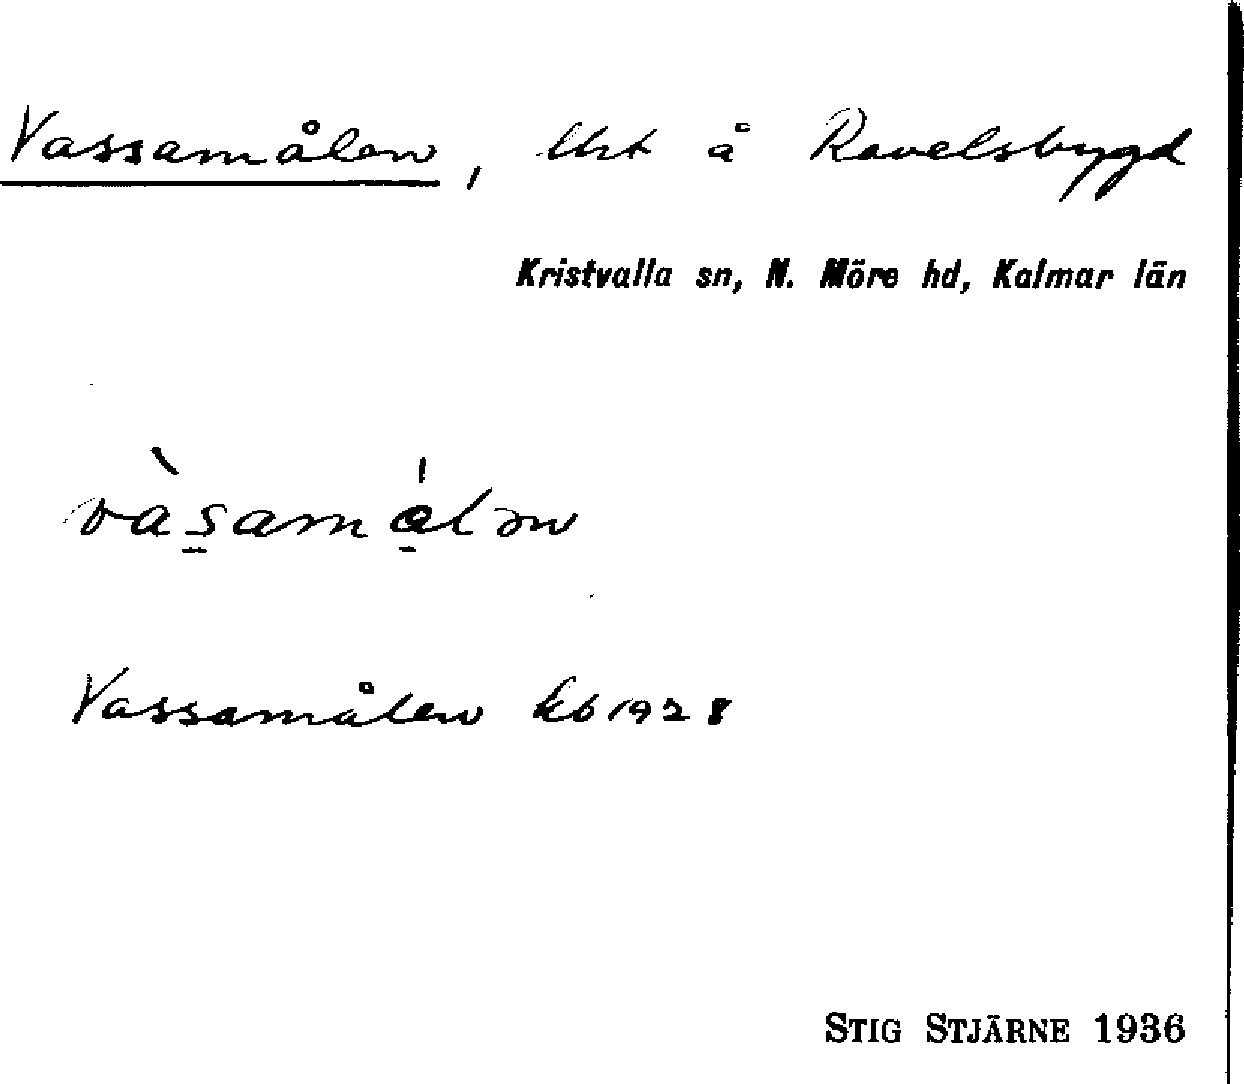 Vassamålen, lht å Ravelsbygd
Kristvalla sn, N. Möre hd, Kalmar län
vàsamålən
Vassamålen kb 1928
STIG STJÄRNE 1936